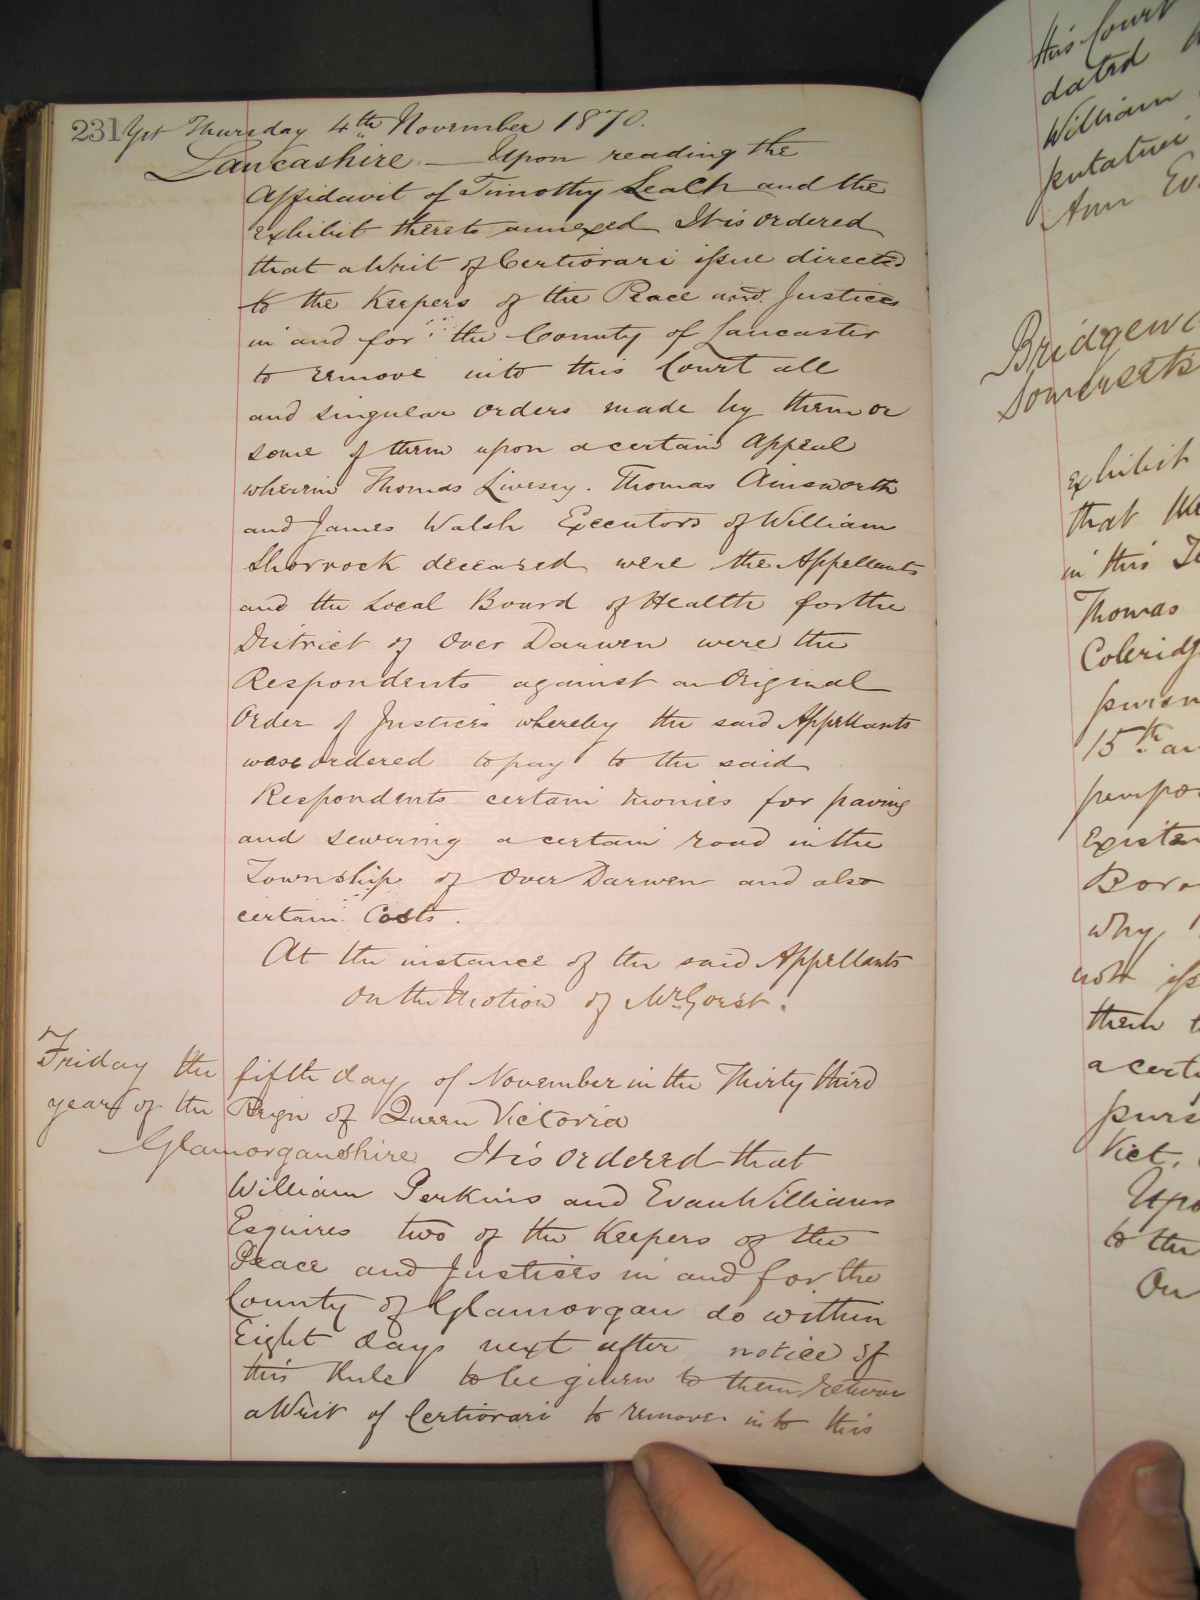 231
Yet Thursday 4th November 1870.
Lancashire — Upon reading the
Affidavit of Timothy Leach and the
exhibit thereto annexed It is ordered
that a Writ of Certiorari issue directed
to the Keepers of the Peace and Justices
in and for the County of Lancaster
to remove into this Court all
and singular orders made by them or
some of them upon a certain Appeal
wherein Thomas Livesey. Thomas Ainsworth
and James Walsh Executors of William
Shorrock deceased were the Appellants
and the Local Board of Health for the
District of Over Darwen were the
Respondents against an Original
Order of Justices whereby the said Appellants
were ordered to pay to the said
Respondents certain monies for paving
and sewering a certain road in the
Township of Over Darwen and also
certain Costs.
At the instance of the said Appellants
On the Motion of Mr. Gorst.
Friday the fifth day of November in the Thirty third
year of the Reign of Queen Victoria
Glamorganshire It is ordered that
William Perkins and Evan Williams
Esquires two of the Keepers of the
Peace and Justices in and for the
County of Glamorgan do within
Eight days next after notice of
this Rule to be given to them return
a Writ of Certiorari to remove into this
this Court
dated
William
putative
Ann
Somersets
exhibit
that
in this
Thomas
15th
why
not
them
a certa
Vict.
to the
On